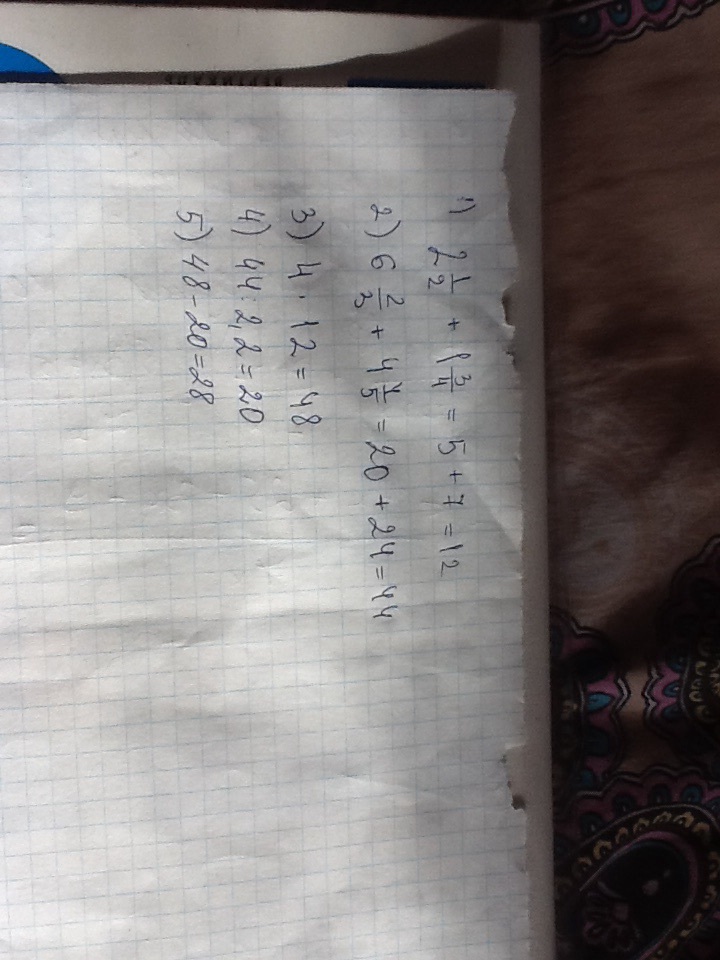 1) 2 1/2 + 1 3/4 = 5 + 7 = 12
2) 6 2/3 + 4 4/5 = 20 + 24 = 44
3) 4 · 12 = 48
4) 44 : 2,2 = 20
5) 48 - 20 = 28
ВЕРТИКАЛЬ